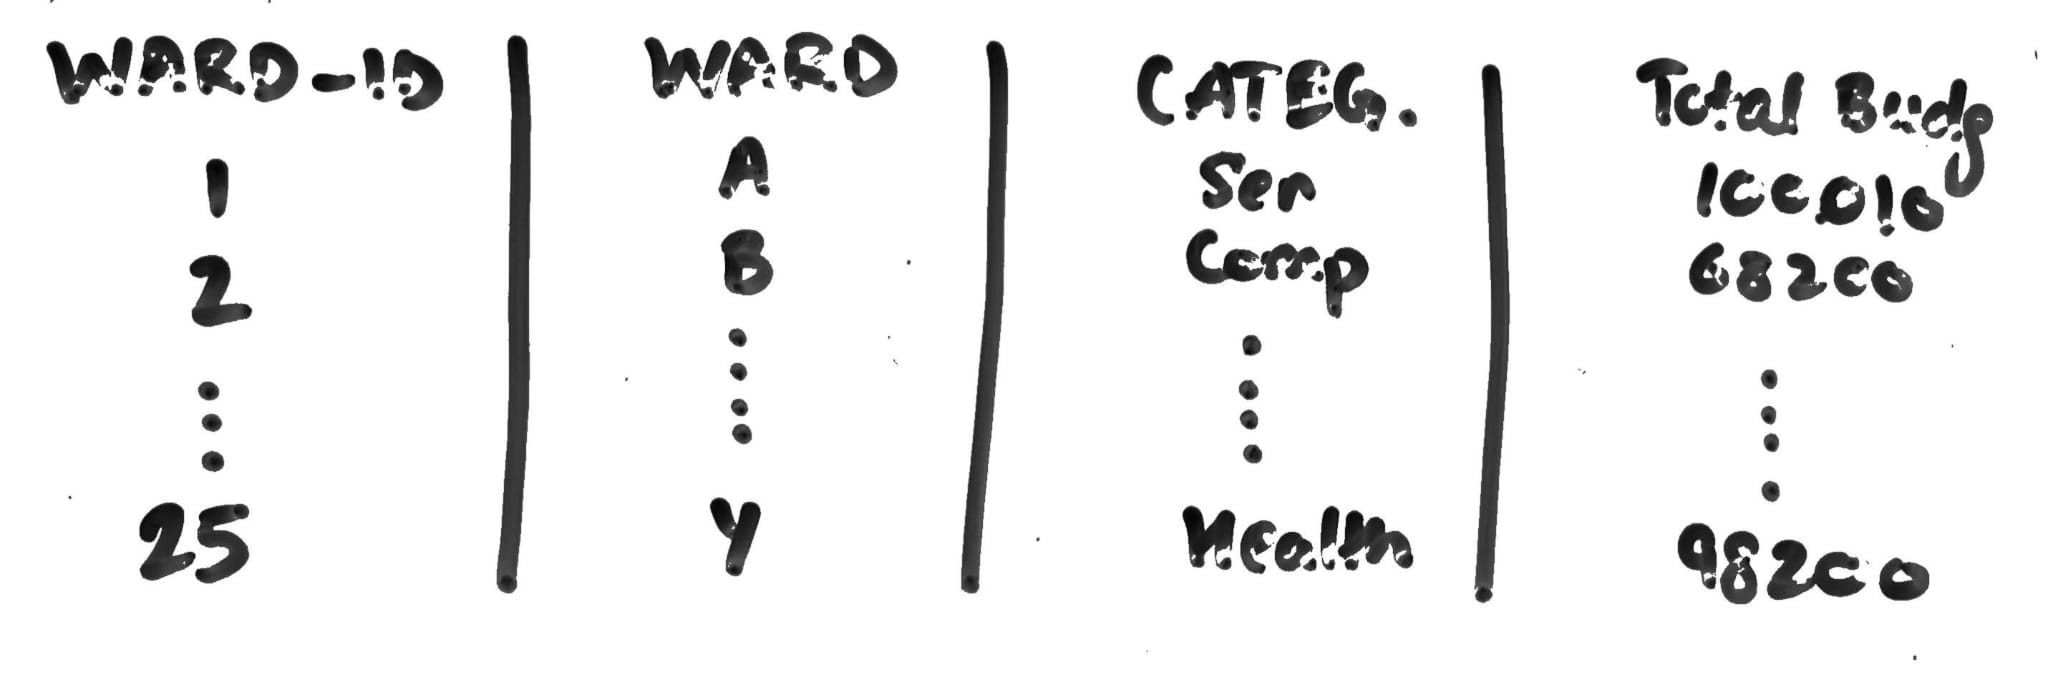 WARD-ID | WARD | CATEG. | Total Budg
1 | A | Ser | 100010
2 | B | Comp | 68200
25 | Y | Health | 98200